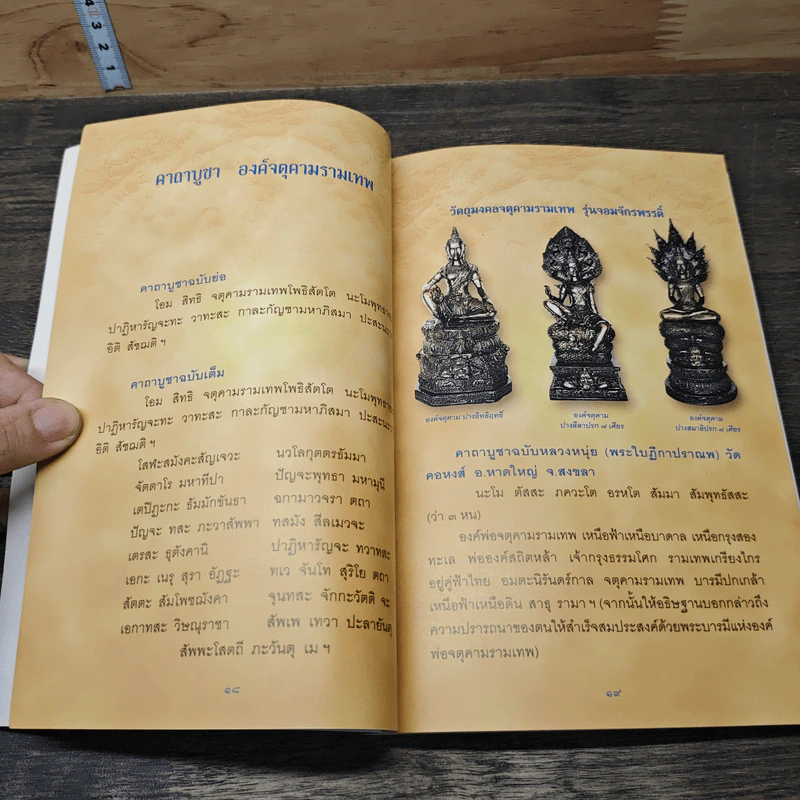 คาถาบูชา องค์จตุคามรามเทพ
คาถาบูชาฉบับย่อ
โอม สิทธิ จตุคามรามเทพโพธิสัตโต นะโมพุทธายะ
ปาฏิหารัญจะทะ วาทะสะ กาละกัญชามหาภิสมา ปะสะนะ
อิติ สัชฌติ ฯ
คาถาบูชาฉบับเต็ม
โอม สิทธิ จตุคามรามเทพโพธิสัตโต นะโมพุทธายะ
ปาฏิหารัญจะทะ วาทะสะ กาละกัญชามหาภิสมา ปะสะนะ
อิติ สัชฌติ ฯ
โสฬะสมังคะสัญเจวะ นวโลกุตตรธัมมา
จัตตาโร มหาทีปา ปัญจะพุทธา มหามุนี
เตปิฏะกะ ธัมมักขันธา ฉกามาวจรา ตถา
ปัญจะ ทสะ ภะวาสัพพา ทสมัง สีลเมวจะ
เตรสะ ธุตังคานิ ปาฏิหารัญจะ ทวาทสะ
เอกะ เนรุ สุรา อัฏฐะ ทเว จันโท สุริโย ตถา
สัตตะ สัมโพชฌังคา จุนทสะ จักกะวัตติ จะ
เอกาทสะ วิษณุราชา สัพเพ เทวา ปะลายันตุ
สัพพะโสตถี ภะวันตุ เม ฯ
๑๘
วัตถุมงคลจตุคามรามเทพ รุ่นจอมจักรพรรดิ์
องค์จตุคาม ปางอิทธิฤทธิ์
องค์จตุคาม
ปางลีลาปรก ๗ เศียร
องค์จตุคาม
ปางสมาธิปรก ๙ เศียร
คาถาบูชาฉบับหลวงหนุ่ย (พระใบฎีกาปราณพ) วัด
คอหงส์ อ.หาดใหญ่ จ.สงขลา
นะโม ตัสสะ ภควะโต อรหโต สัมมา สัมพุทธัสสะ
(ว่า ๓ หน)
องค์พ่อจตุคามรามเทพ เหนือฟ้าเหนือบาดาล เหนือกรุงสอง
ทะเล พ่อองค์สถิตหล้า เจ้ากรุงธรรมโศก รามเทพเกรียงไกร
อยู่คู่ฟ้าไทย อมตะนิรันดร์กาล จตุคามรามเทพ บารมีปกเกล้า
เหนือฟ้าเหนือดิน สาธุ รามา ฯ (จากนั้นให้อธิษฐานบอกกล่าวถึง
ความปรารถนาของตนให้สำเร็จสมประสงค์ด้วยพระบารมีแห่งองค์
พ่อจตุคามรามเทพ)
๑๙
4
3
2
1